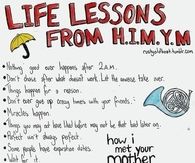 LIFE LESSONS
FROM H.I.M.Y.M
• Nothing good ever happens after 2 A.M.
• Don't chase after what doesn't work. Let the universe take over.
• Things happen for a reason.
• Don't ever give up crazy times with your friends.
• Miracles happen.
• What you may at love liked before may not be that bad later on.
• Perfect isn't always perfect.
• Some people have expiration dates.
• Wait for
how i
met your
mother